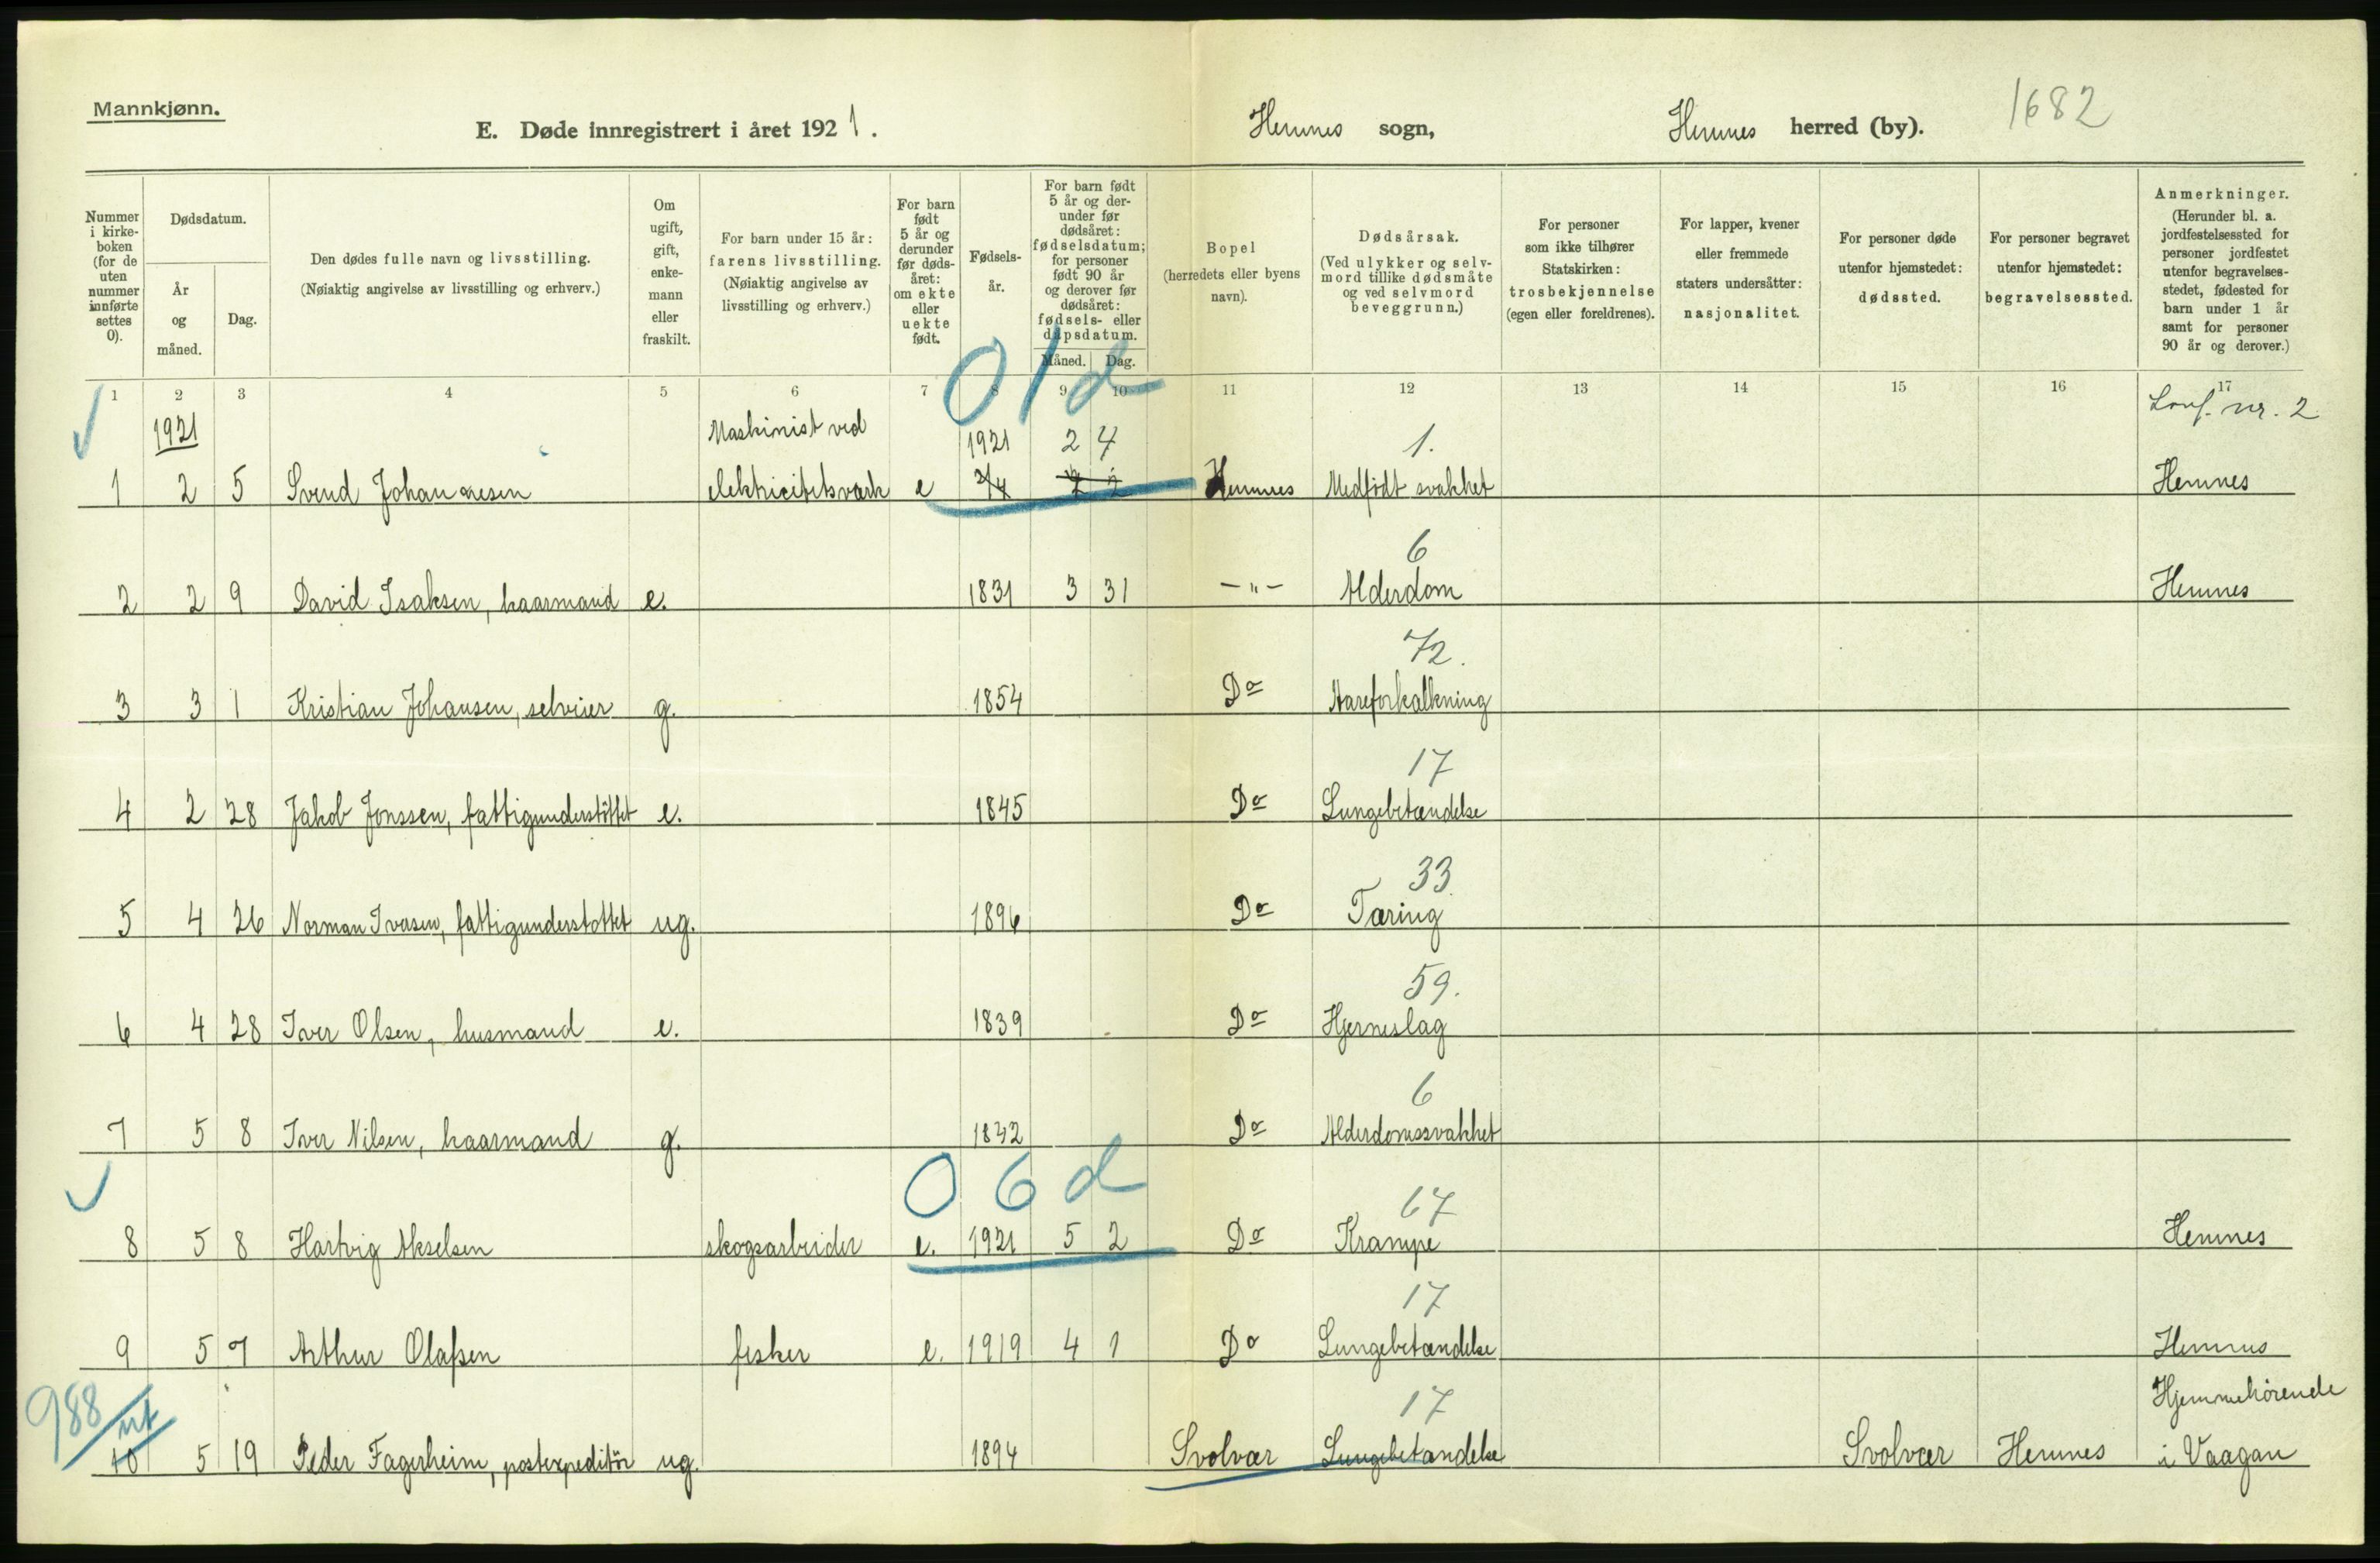 Mannkjønn.
E. Døde innregistrert i året 1921.
Hemnes sogn,
Hemnes herred (by).
1682
Nummer i kirke-boken (for de uten nummer innførte settes 0).
Dødsdatum.
År og måned.
Dag.
Den dødes fulle navn og livsstilling.
(Nøiaktig angivelse av livsstilling og erhverv.)
Om ugift, gift, enke-mann eller fraskilt.
For barn under 15 år: farens livsstilling.
(Nøiaktig angivelse av livsstilling og erhverv.)
For barn født 5 år og derunder før døds-året: om ekte eller uekte født.
Fødsels-år.
For barn født 5 år og der-under før dødsåret: fødselsdatum; for personer født 90 år og derover før dødsåret: fødsels- eller dåpsdatum.
Måned. Dag.
Bopel (herredets eller byens navn).
Dødsårsak.
(Ved ulykker og selv-mord tillike dødsmåte og ved selvmord beveggrunn.)
For personer som ikke tilhører Statskirken: trosbekjennelse (egen eller foreldrenes).
For lapper, kvener eller fremmede staters undersåtter: nasjonalitet.
For personer døde utenfor hjemstedet: dødssted.
For personer begravet utenfor hjemstedet: begravelsessted.
Anmerkninger.
(Herunder bl. a. jordfestelsessted for personer jordfestet utenfor begravelses-stedet, fødested for barn under 1 år samt for personer 90 år og derover.)
1 2 3 4 5 6 7 8 9 10 11 12 13 14 15 16 17
01d
nr. 2
1921 Maskinist ved 1921 2 4 1.
1 2 5 Svend Johannesen elektricitetsværk e Hemnes Medfødt svakhet Hemnes
6
2 2 9 David Isaksen, kaarmand e. 1831 3 31 -"- Alderdom Hemnes
72.
3 3 1 Kristian Johansen, selveier g. 1854 Do Aareforkalkning
17
4 2 28 Jakob Jonssen, fattigunderstøttet e. 1845 Do Lungebetændelse
33
5 4 26 Norman Ivarsen, fattigunderstøttet ug. 1896 Do Tæring
59.
6 4 28 Iver Olsen, husmand e. 1839 Do Hjerneslag
6
7 5 8 Iver Nilsen, kaarmand g. 1842 Do Alderdomssvakhet
06d 67
8 5 8 Hartvig Akselsen skogsarbeider e. 1921 5 2 Do Krampe Hemnes
17
9 5 7 Arthur Olafsen fisker e. 1919 4 1 Do Lungebetændelse Hemnes
988 ut 17 Hjemmehørende
10 5 19 Peder Fagerheim, postexpeditør ug. 1894 Svolvær Lungebetændelse Svolvær Hemnes i Vaagan